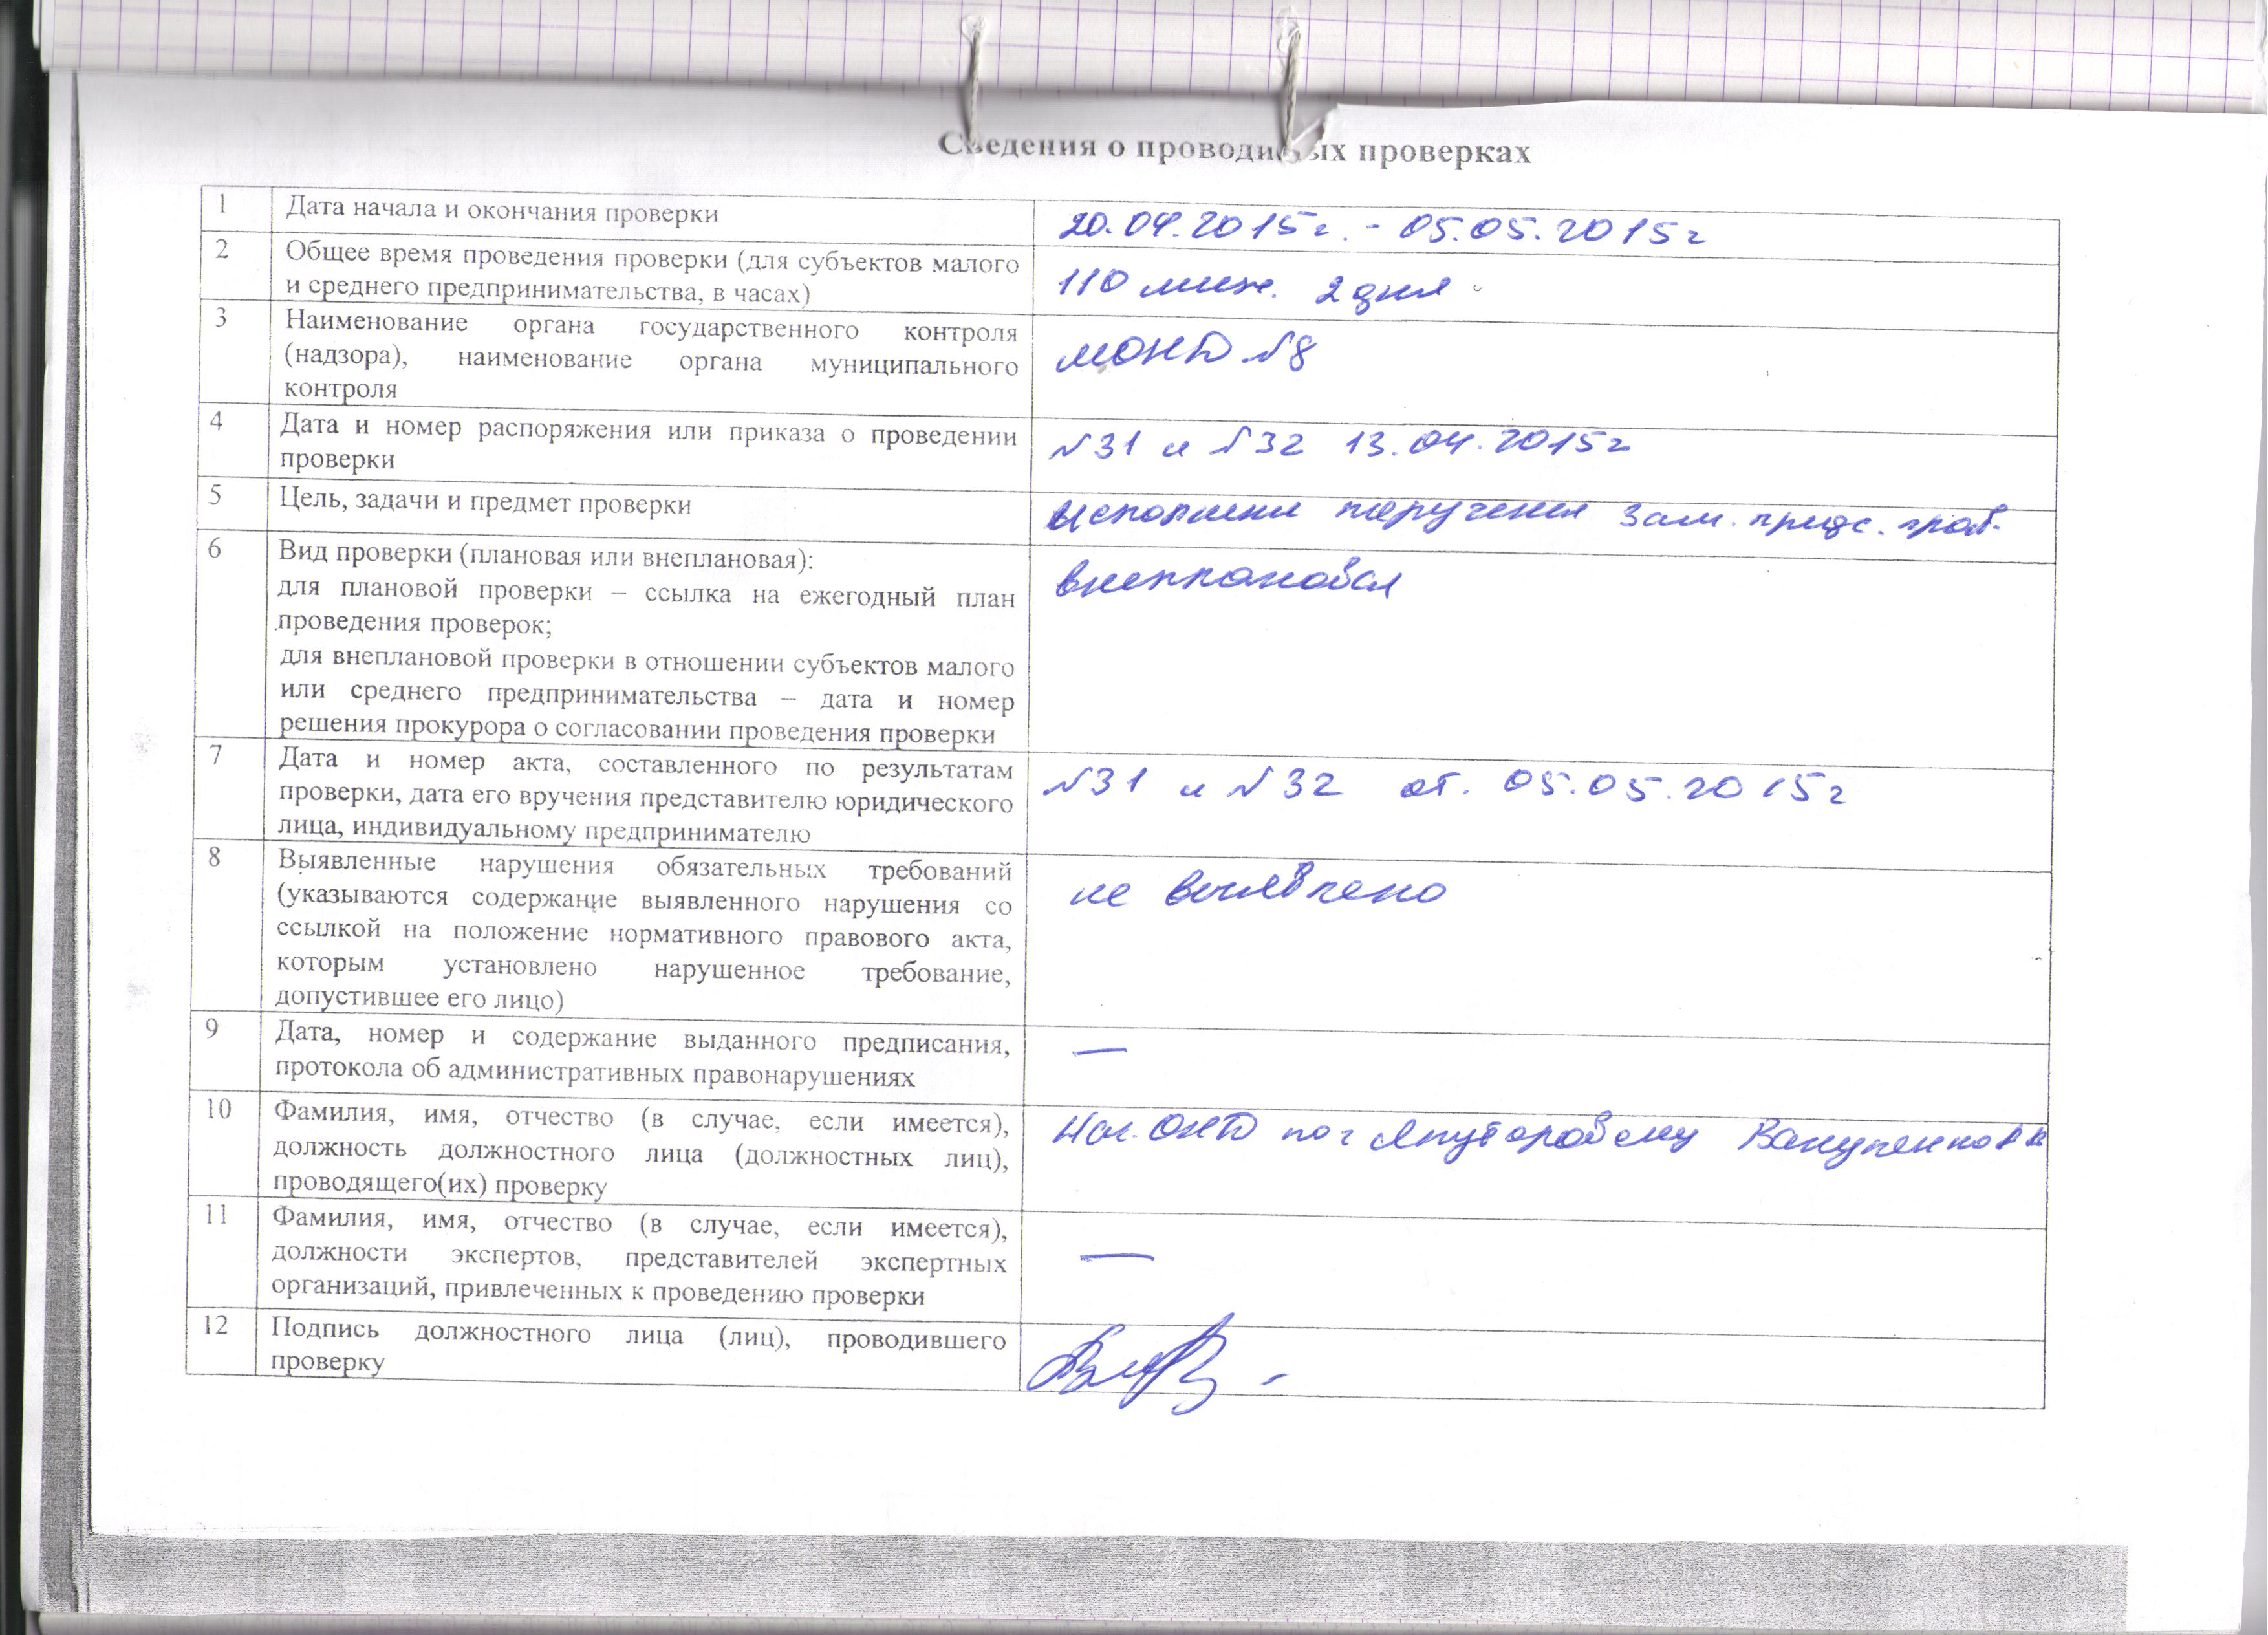 Сведения о проводимых проверках
1 Дата начала и окончания проверки 20.04.2015г. - 05.05.2015г
2 Общее время проведения проверки (для субъектов малого
и среднего предпринимательства, в часах) 110 мин. 2 дня
3 Наименование органа государственного контроля
(надзора), наименование органа муниципального
контроля
МОНД №8
4 Дата и номер распоряжения или приказа о проведении
проверки
№31 и №32 13.04.2015г
5 Цель, задачи и предмет проверки поручения зам. предс. прав.
6 Вид проверки (плановая или внеплановая):
для плановой проверки – ссылка на ежегодный план
проведения проверок;
для внеплановой проверки в отношении субъектов малого
или среднего предпринимательства – дата и номер
решения прокурора о согласовании проведения проверки
внеплановая
7 Дата и номер акта, составленного по результатам
проверки, дата его вручения представителю юридического
лица, индивидуальному предпринимателю
№31 и №32 от. 05.05.2015г
8 Выявленные нарушения обязательных требований
(указываются содержание выявленного нарушения со
ссылкой на положение нормативного правового акта,
которым установлено нарушенное требование,
допустившее его лицо)
не выявлено
9 Дата, номер и содержание выданного предписания,
протокола об административных правонарушениях
—
10 Фамилия, имя, отчество (в случае, если имеется),
должность должностного лица (должностных лиц),
проводящего(их) проверку
Нач. ОНД по г Ялуторовску
11 Фамилия, имя, отчество (в случае, если имеется),
должности экспертов, представителей экспертных
организаций, привлеченных к проведению проверки
—
12 Подпись должностного лица (лиц), проводившего
проверку